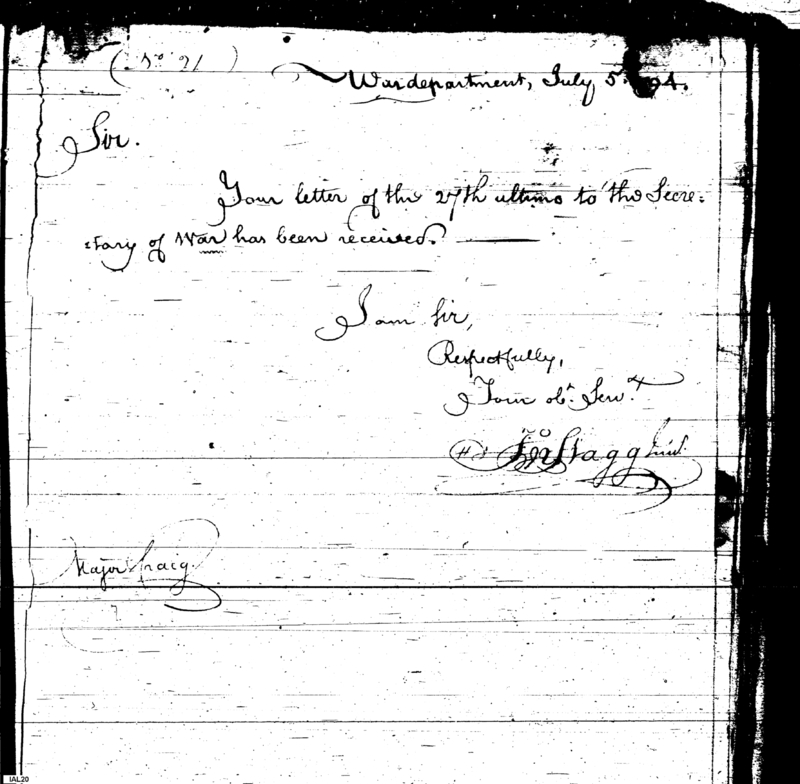 (No. 21)
War department, July 5. 94.
Sir.
Your letter of the 27th ultimo to the Secre=
=tary of War has been received.
I am Sir,
Respectfully,
Your obt. Servt.
Jno Stagg Junr.
Major Craig
IAL20